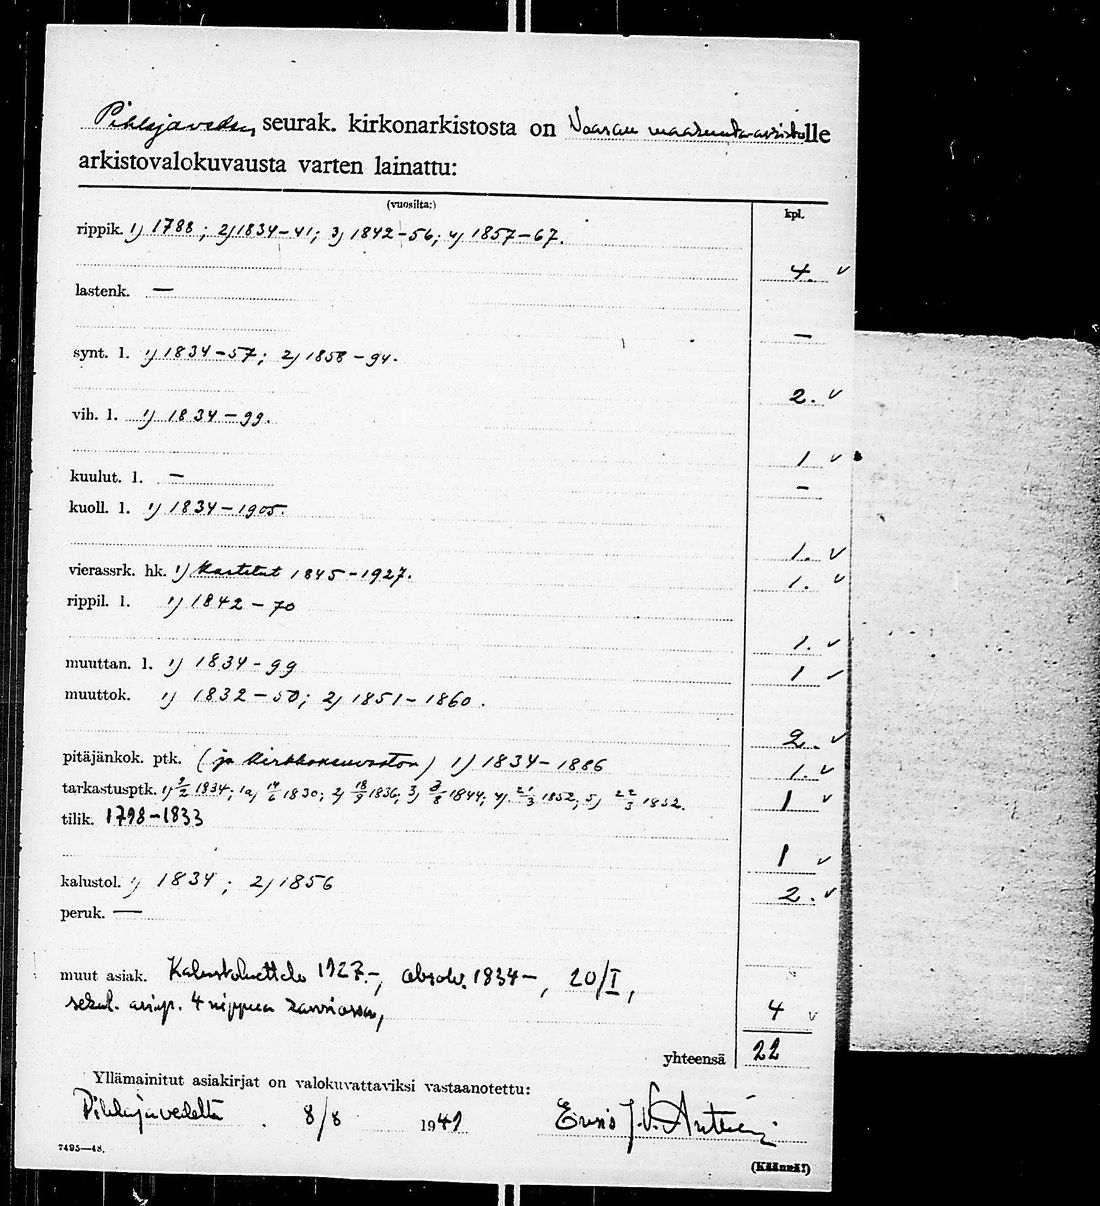 Pihlajaveden seurak. kirkonarkistosta on Vaasan maakunta-arkistolle
arkistovalokuvausta varten lainattu:
(vuosilta:) kpl.
rippik. 1) 1788; 2) 1834–41; 3) 1842–56; 4) 1857–67.
4. ✓
lastenk. —
—
synt. l. 1) 1834–57; 2) 1858–94.
2. ✓
vih. l. 1) 1834–99.
1 ✓
kuulut. l. — —
kuoll. l. 1) 1834–1905.
1. ✓
vierassrk. hk. 1) Kastetut 1845–1927. 1. ✓
rippil. l. 1) 1842–70
1. ✓
muuttan. l. 1) 1834–99 1 ✓
muuttok. 1) 1832–50; 2) 1851–1860.
2. ✓
pitäjänkok. ptk. (ja kirkkoneuvoston) 1) 1834–1886 1. ✓
tarkastusptk. 1) 9/2 1834; 1a) 14/6 1830; 2) 18/9 1836, 3) 3/8 1844; 4) 21/3 1852, 5) 22/3 1852. 1 ✓
tilik. 1798–1833
1 ✓
kalustol. 1) 1834; 2) 1856 2. ✓
peruk. —
muut asiak. Kalustoluettelo 1927.–, absolv. 1834–, 20/I,
sekal. asiap. 4 nippua 4 ✓
yhteensä 22
Yllämainitut asiakirjat on valokuvattaviksi vastaanotettu:
Pihlajavedeltä 8/8 1949 J.V.
7495—48.
(Käännä!)